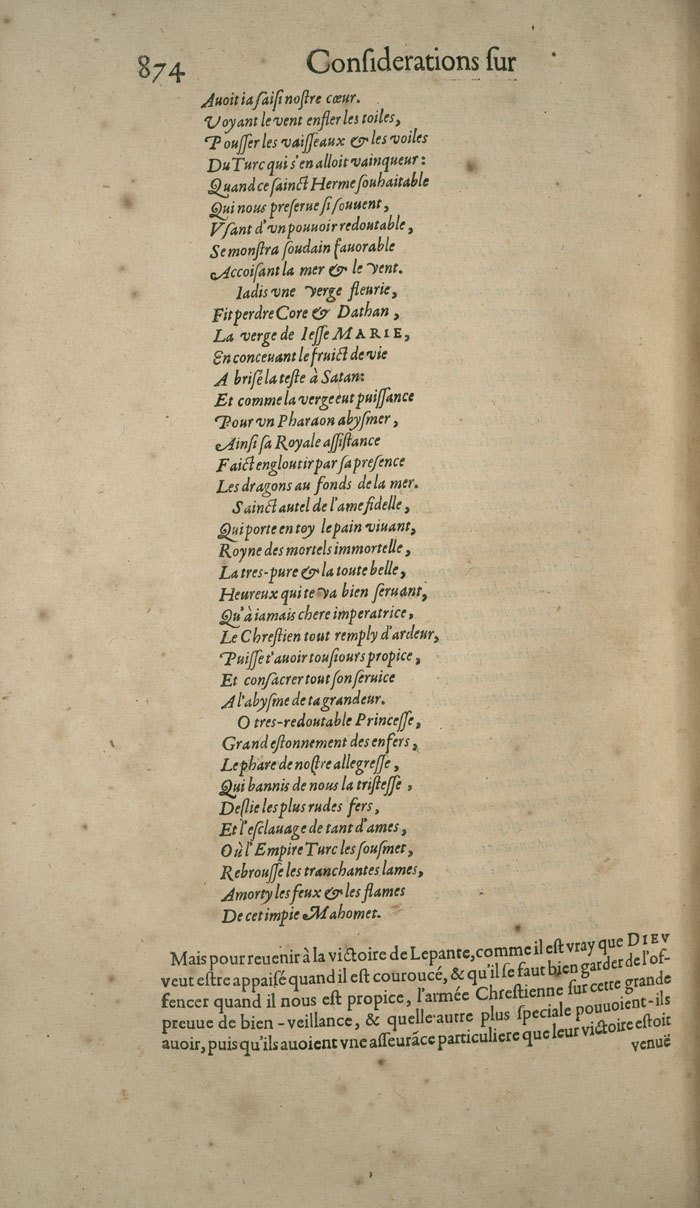 874 Conſiderations ſur
Auoit ia ſaiſi noſtre cœur.
Voyant le vent enfler les toiles,
Pouſſer les vaiſſeaux & les voiles
Du Turc qui s'en alloit vainqueur:
Quand ce ſainct Herme ſouhaitable
Qui nous preſerue ſi ſouuent,
Vſant d'vn pouuoir redoutable,
Se monſtra ſoudain fauorable
Accoiſant la mer & le vent.
Iadis vne verge fleurie,
Fit perdre Core & Dathan,
La verge de Ieſſe MARIE,
En conceuant le fruict de vie
A briſé la teſte à Satan:
Et comme la verge eut puiſſance
Pour vn Pharaon abyſmer,
Ainſi ſa Royale aſſiſtance
Faict engloutir par ſa preſence
Les dragons au fonds de la mer.
Sainct autel de l'ame fidelle,
Qui porte en toy le pain viuant,
Royne des mortels immortelle,
La tres-pure & la toute belle,
Heureux qui te va bien ſeruant,
Qu'à iamais chere imperatrice,
Le Chreſtien tout remply d'ardeur,
Puiſſe t'auoir touſiours propice,
Et conſacrer tout ſon ſeruice
A l'abyſme de ta grandeur.
O tres-redoutable Princeſſe,
Grand eſtonnement des enfers,
Le phare de noſtre allegreſſe,
Qui bannis de nous la triſteſſe,
Deſlie les plus rudes fers,
Et l'eſclauage de tant d'ames,
Où l'Empire Turc les ſouſmet,
Rebrouſſe les tranchantes lames,
Amorty les feux & les flames
De cet impie Mahomet.
Mais pour reuenir à la victoire de Lepante, comme il eſt vray que DIEV
veut eſtre appaiſé quand il eſt couroucé, & qu'il ſe faut bien garder de l'of-
fencer quand il nous eſt propice, l'armée Chreſtienne ſur cette grande
preuue de bien-veillance, & quelle autre plus ſpeciale pouuoient-ils
auoir, puis qu'ils auoient vne aſſeurãce particuliere que leur victoire eſtoit
venuë